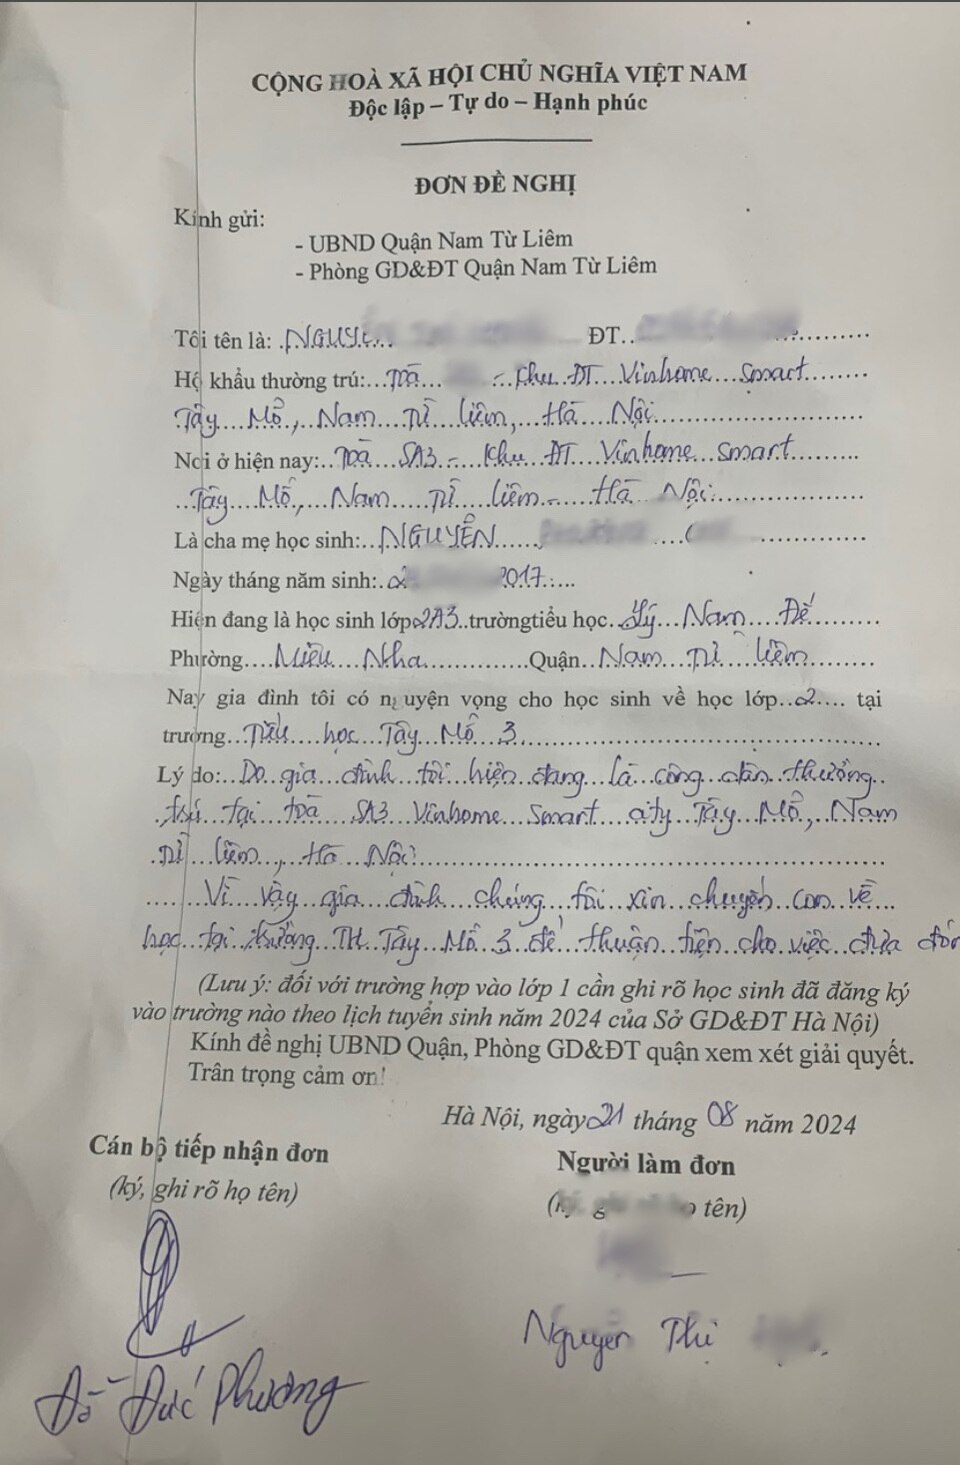 CỘNG HOÀ XÃ HỘI CHỦ NGHĨA VIỆT NAM
Độc lập – Tự do – Hạnh phúc
ĐƠN ĐỀ NGHỊ
Kính gửi:
- UBND Quận Nam Từ Liêm
- Phòng GD&ĐT Quận Nam Từ Liêm
Tôi tên là: ĐT
Hộ khẩu thường trú: Toà - Khu ĐT Vinhome smart
Tây Mỗ, Nam Từ Liêm, Hà Nội
Nơi ở hiện nay: Toà SA3 - Khu ĐT Vinhome smart
Tây Mỗ, Nam Từ Liêm - Hà Nội
Là cha mẹ học sinh: NGUYỄN
Ngày tháng năm sinh: 2017
Hiện đang là học sinh lớp 2A3 trường tiểu học Lý Nam Đế
Phường Miêu Nha Quận Nam Từ Liêm
Nay gia đình tôi có nguyện vọng cho học sinh về học lớp 2 tại
trường Tiểu học Tây Mỗ 3
Lý do: Do gia đình tôi hiện đang là công dân thường
trú tại toà SA3 Vinhome Smart city Tây Mỗ, Nam
Từ Liêm, Hà Nội
Vì vậy gia đình chúng tôi xin chuyển con về
học tại trường TH Tây Mỗ 3 để thuận tiện cho việc đưa đón
(Lưu ý: đối với trường hợp vào lớp 1 cần ghi rõ học sinh đã đăng ký
vào trường nào theo lịch tuyển sinh năm 2024 của Sở GD&ĐT Hà Nội)
Kính đề nghị UBND Quận, Phòng GD&ĐT quận xem xét giải quyết.
Trân trọng cảm ơn!
Hà Nội, ngày 21 tháng 08 năm 2024
Cán bộ tiếp nhận đơn Người làm đơn
(ký, ghi rõ họ tên) (ký, ghi rõ họ tên)
Nguyễn Thị
Đỗ Đức Phương